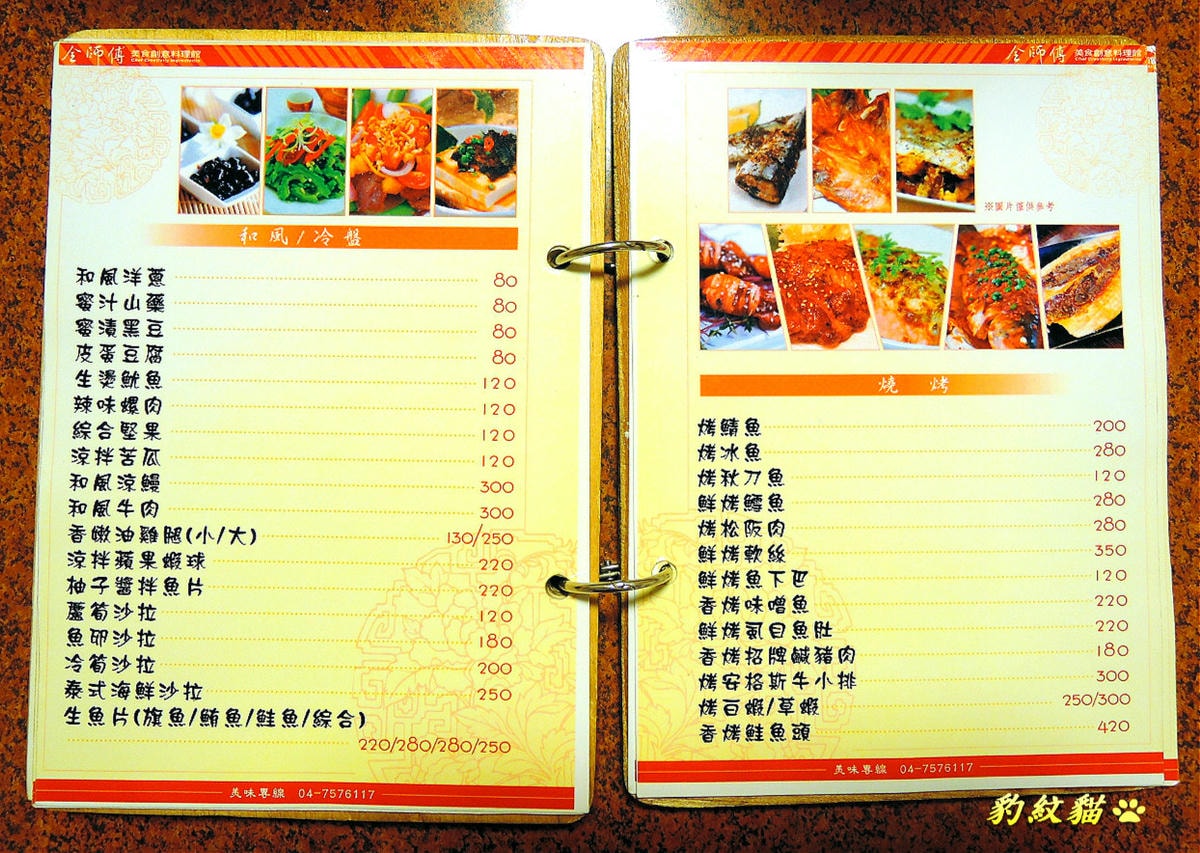 金師傅 美食創意料理館
Chef Creativity Ingredients
和風/冷盤
和風洋蔥 80
蜜汁山藥 80
蜜漬黑豆 80
皮蛋豆腐 80
生燙魷魚 120
辣味螺肉 120
綜合堅果 120
涼拌苦瓜 120
和風涼鰻 300
和風牛肉 300
香嫩油雞腿(小/大) 130/250
涼拌蘋果蝦球 220
柚子醬拌魚片 220
蘆筍沙拉 120
魚卵沙拉 180
冷筍沙拉 200
泰式海鮮沙拉 250
生魚片(旗魚/鮪魚/鮭魚/綜合)
220/280/280/250
美味專線 04-7576117
金師傅 美食創意料理館
Chef Creativity Ingredients
※圖片僅供參考
燒烤
烤鯖魚 200
烤冰魚 280
烤秋刀魚 120
鮮烤鱈魚 280
烤松阪肉 280
鮮烤軟絲 350
鮮烤魚下巴 120
香烤味噌魚 220
鮮烤虱目魚肚 220
香烤招牌鹹豬肉 180
烤安格斯牛小排 300
烤白蝦/草蝦 250/300
香烤鮭魚頭 420
美味專線 04-7576117
豹紋貓